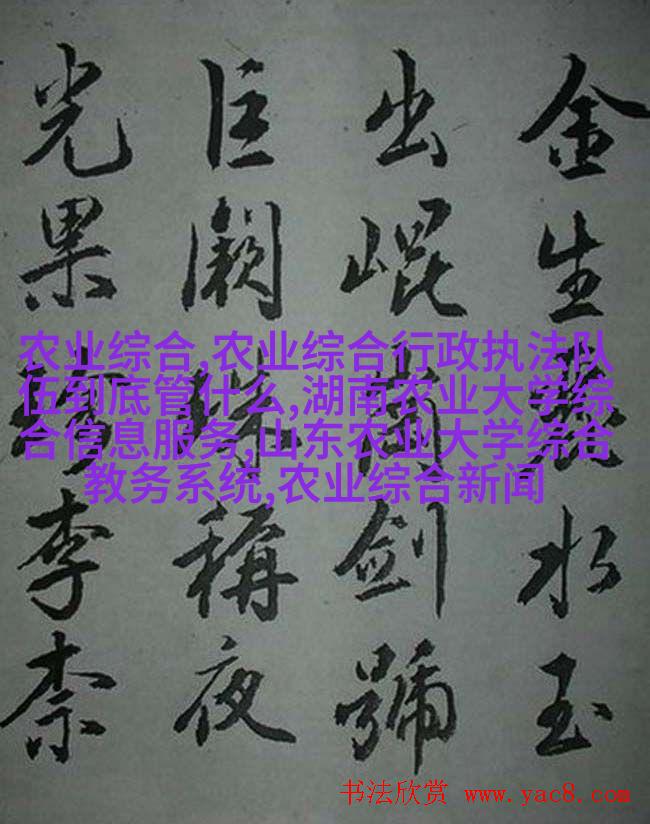 金生麗水玉
出崐岡劍號
巨闕珠稱夜
光果珍李柰
农业综合,农业综合行政执法队
伍到底管什么,湖南农业大学综
合信息服务,山东农业大学综合
教务系统,农业综合新闻
书法欣赏 www.yac8.com